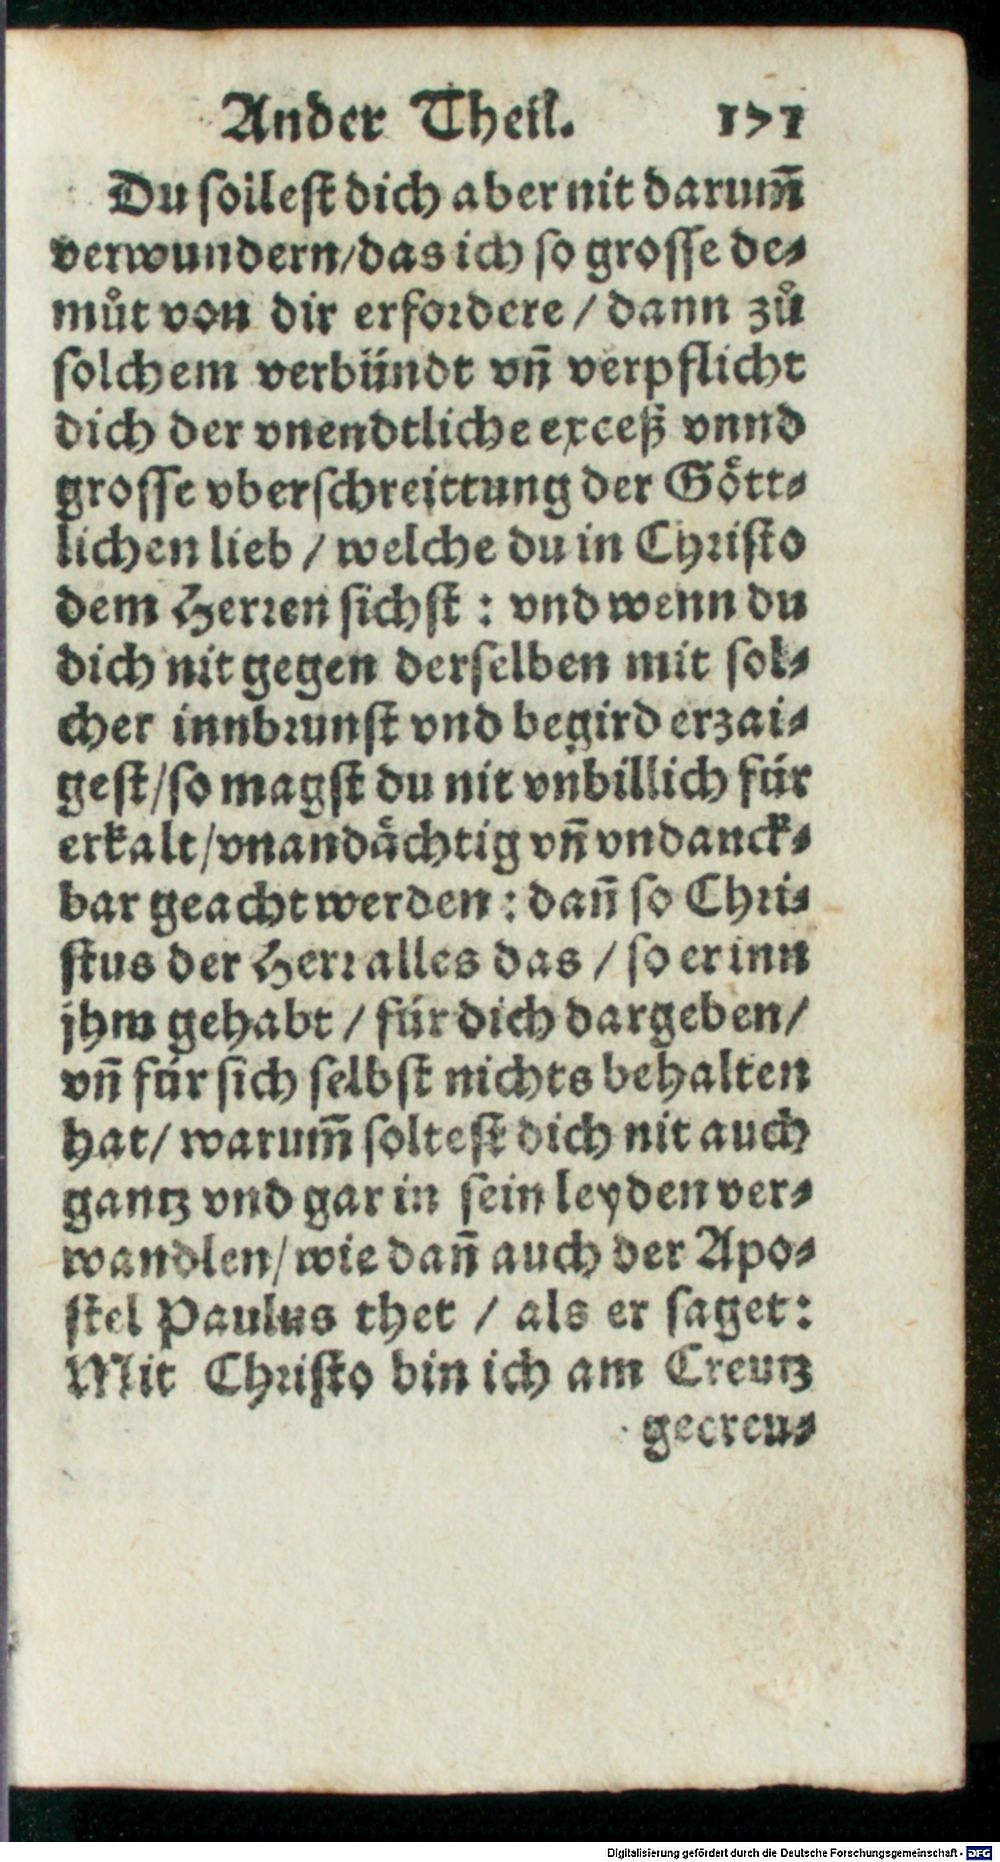 Ander Theil. 171
Du sollest dich aber nit darum̄
verwundern/das ich so grosse de⸗
můt von dir erfordere / dann zů
solchem verbündt vn̄ verpflicht
dich der vnendtliche exceß vnnd
grosse vberschreittung der Gött⸗
lichen lieb / welche du in Christo
dem Herren sichst : vnd wenn du
dich nit gegen derselben mit sol⸗
cher innbrunst vnd begird erzai⸗
gest/so magst du nit vnbillich für
erkalt/vnandächtig vn̄ vndanck⸗
bar geacht werden : dan̄ so Chri⸗
stus der Herr alles das / so er inn
jhm gehabt / für dich dargeben/
vn̄ für sich selbst nichts behalten
hat/ warum̄ soltest dich nit auch
gantz vnd gar in sein leyden ver⸗
wandlen/wie dan̄ auch der Apo⸗
stel Paulus thet / als er saget:
Mit Christo bin ich am Creutz
gecreu⸗
Digitalisierung gefördert durch die Deutsche Forschungsgemeinschaft - DFG